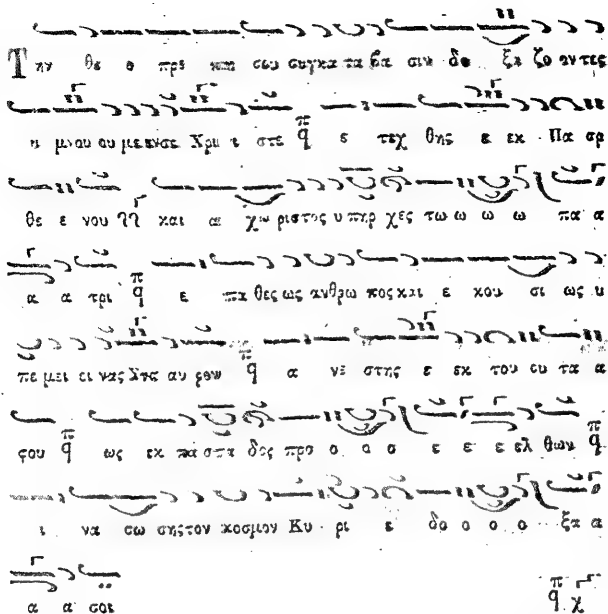 Την θε ο πρε και σου συγκα τα βα σιν δο ξα ζο αντες
υ μνου ου με εν σε Χρι ι στε π q ε τεχ θης ε εκ Πα αρ
θε ε νου και αι χω ριστος υ πηρ χες τω ω ω ω πα α
α α τρι π q ε πα θες ως ανθρω πος και ε κου σι ως υ
πε μει ει νας Στα αυ ρον π q α νε στης ε εκ του ου τα α
φου π q ως εκ πα στα δος προ ο ο ο ε ε ε ελ θων π q
ι να σω σης τον κοσμον Κυ ρι ε δο ο ο ο ξα α
α α σοι π q χ